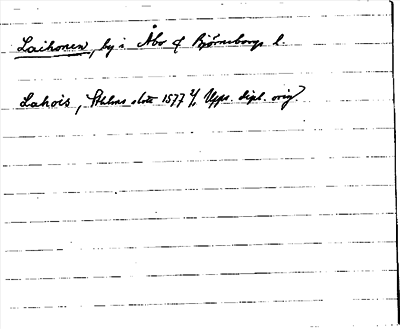 Laihonen, by i Åbo & Björneborgs l.
Lahois, Sthlms slott 1577 4/1 Upps. dipl. orig.